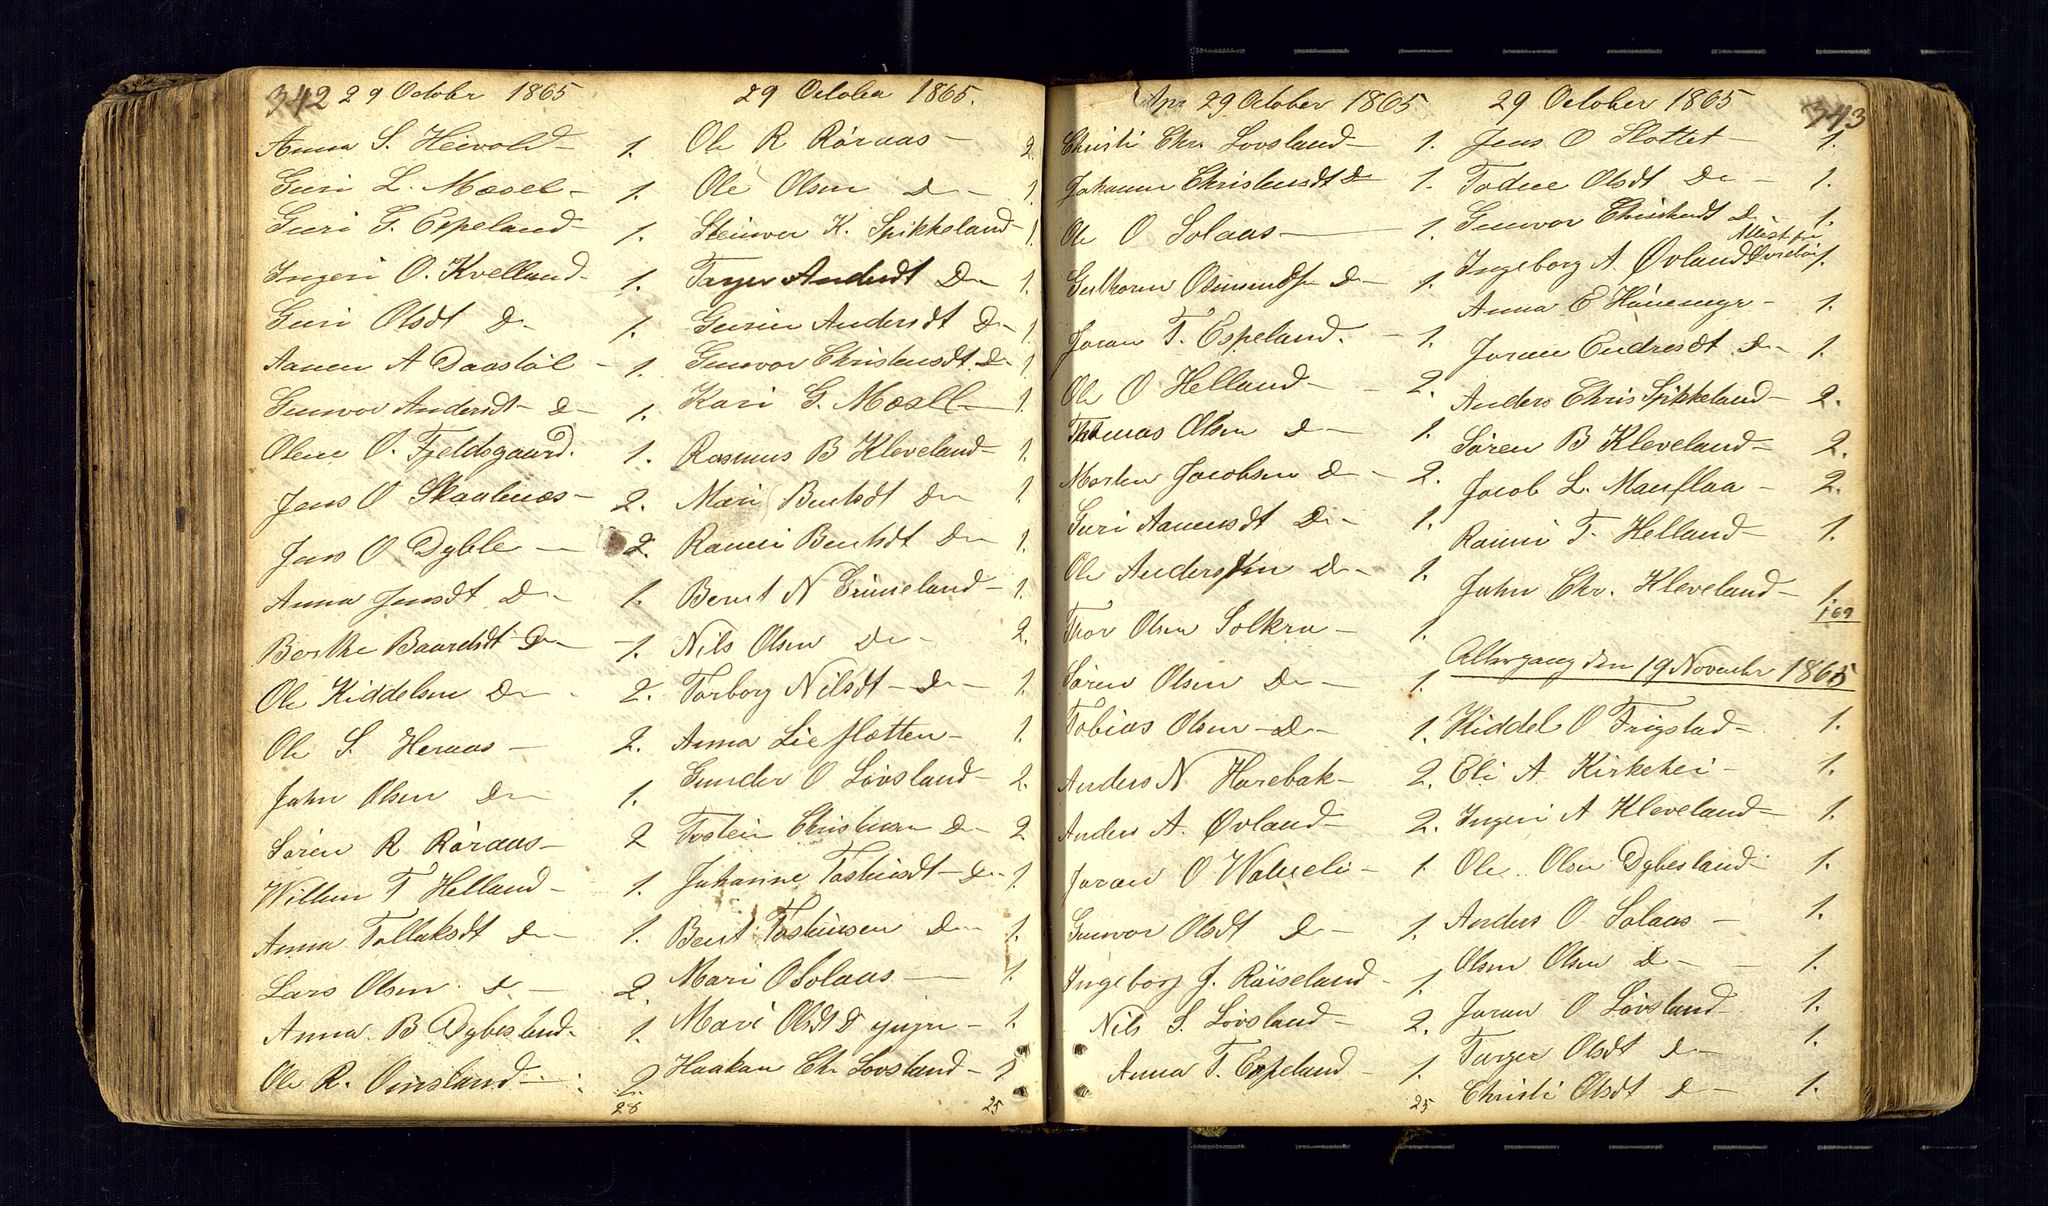 342 29 October 1865
Anna S. Heivold - 1.
Guri L. Mæsel - 1.
Guri G. Espeland - 1.
Ingeri O. Kvelland - 1.
Guri Olsdt D - 1.
Aanen A Daastöl - 1.
Gunvor Andersdt - D - 1.
Olene O. Fjeldsgaard. 1.
Jens O Skaalnæs - 2.
Jens O Dyble - 2.
Anna Jensdt D - 1.
Berthe Baardsdt D - 1.
Ole Kiddelsen D - 2.
Ole S. Heraas - 2.
John Olsen D - 1.
Sören R Røraas - 2
Willum T Helland - 1.
Anna Tallaksdt D - 1.
Lars Olsen D - 2.
Anna B Dybesland - 1.
Ole R. Omsland - 2
28
29 October 1865.
Ole R Røraas - 2
Ole Olsen D - 1.
Steinver K. Spikkeland - 1.
Tager Andersdt D - 1.
Gurine Andersdt D - 1
Gunvor Christensdt D - 1
Kari G. Mæsel - 1.
Rasmus B Kleveland - 1.
Mari Bentsdt D - 1
Rannei Bentsdt D - 1.
Berent N Grimeland - 1.
Nils Olsen D - 2.
Torborg Nilsdt - D - 1.
Anna Lieflotten - 1.
Gunder O Lövsland - 2.
Tostein Christensen D - 2
Johanne Tosteinsdt - D - 1.
Bent Tosteinsen D - 1.
Mari O Solaas - 1.
Mari Olsdt D yngr - 1.
Haakon Chr Lovsland - 1
25
29 October 1865
Christi Chr. Lovsland - 1.
Johanne Christensdt D 1.
Ole O Solaas - 1.
Guthorm Osmundsen D - 1.
Joran T. Espeland. - 1.
Ole O Helland - 2.
Thomas Olsen D - 1.
Morten Jacobsen D - 2.
Guri Aanensdt D - 1.
Ole Andersen D - 1.
Thor Olsen Solkra - 1.
Sören Olsen D - 1.
Tobias Olsen - D - 1.
Anders N Harebak - 2.
Anders A. Øvland - 2.
Joran O Watneli - 1.
Gunvor Olsdt D - 1.
Ingeborg J. Röiseland - 1.
Nils S. Lövsland - 2.
Anna T. Espeland - 1.
25
29 October 1865 343
Jens O Slottet - 1.
Todne Olsdt D - 1.
Gunvor Christensdt D - 1.
Attest fra
Ingeborg A. Øvland Øvrebö 1.
Anna E Hönemyr - 1.
Joran Endresdt D - 1.
Anders Chris Spikkeland - 2.
Sören B Kleveland - 2.
Jacob L. Manflaa - 2.
Rannei T. Helland - 1.
John Chr. Kleveland - 1.
109
Altergang den 19 November 1865
Kiddel O Frigstad - 1.
Eli A Kirkehei - 1.
Ingeri A Kleveland - 1.
Ole Olsen Dybesland 1.
Anders O. Solaas - 1.
Olsen Olsen D - 1.
Joran O Lövsland - 1.
Targer Olsdt D - 1.
Christi Olsdt D - 1.